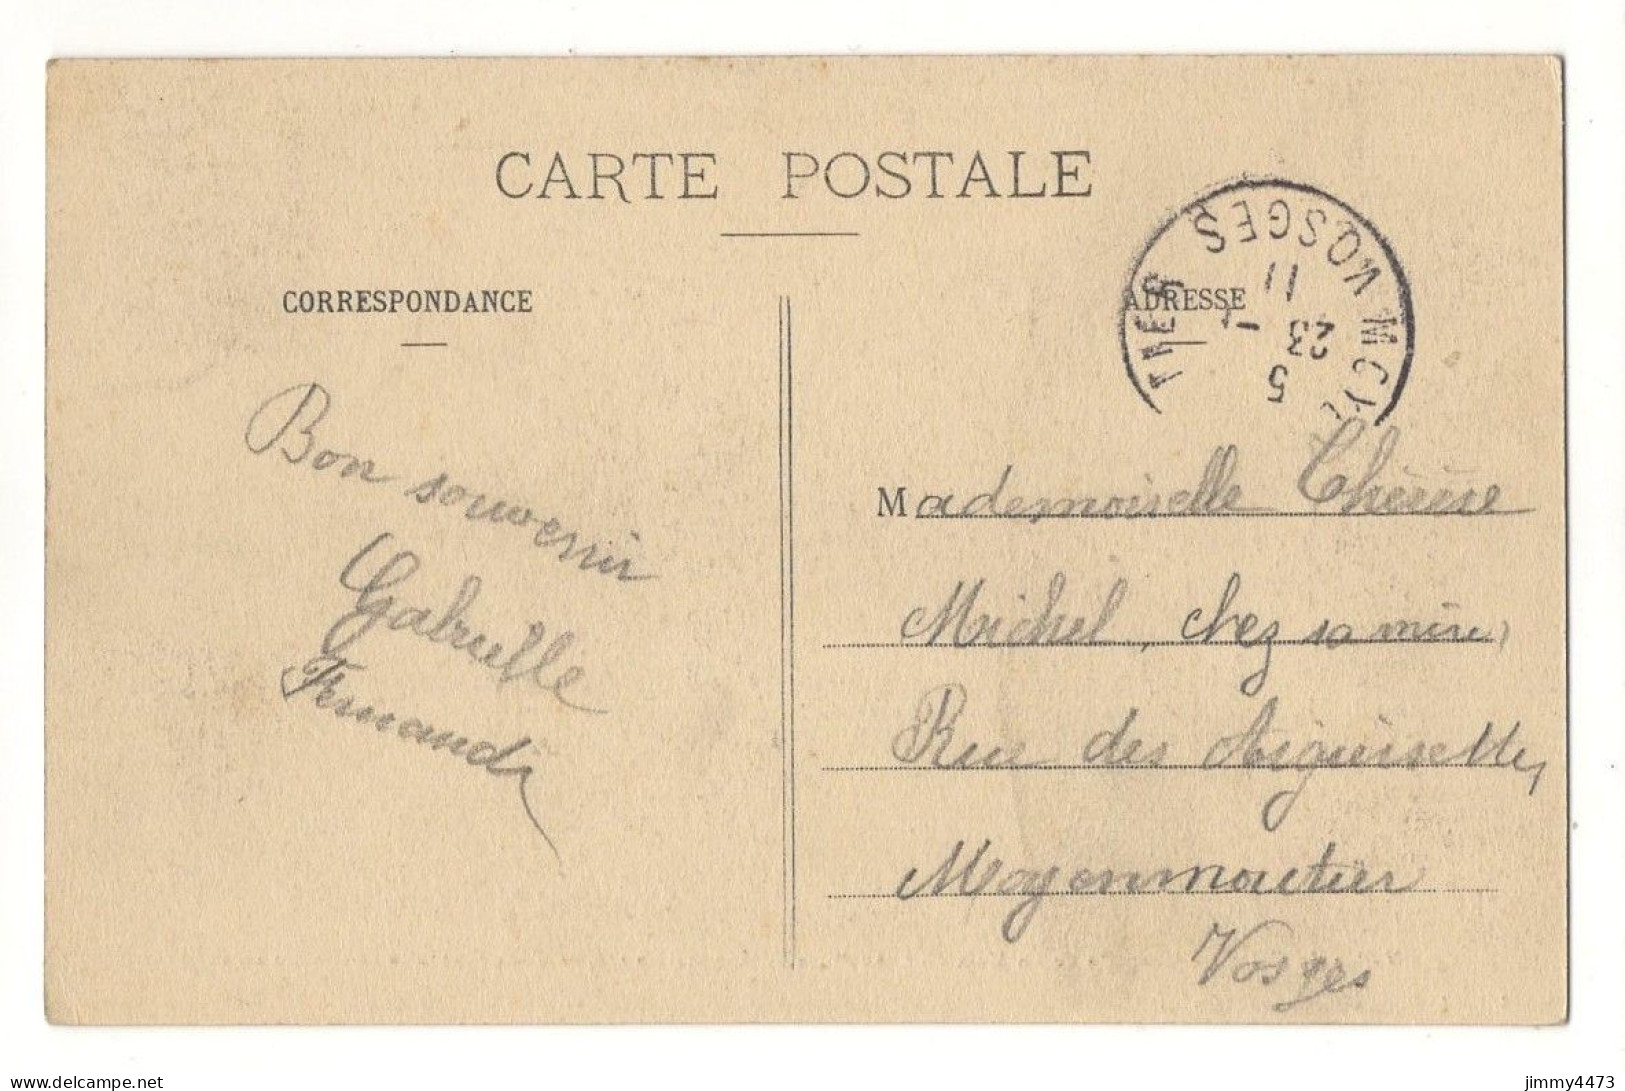 CARTE POSTALE
CORRESPONDANCE
ADRESSE
MOYENMOUTIER VOSGES
5
23 - 1
11
Bon souvenir
Gabrielle
Fernande
Mademoiselle Thérèse
Michel, chez sa mère,
Rue des
Moyenmoutier
Vosges
delcampe.net
jimmy4473